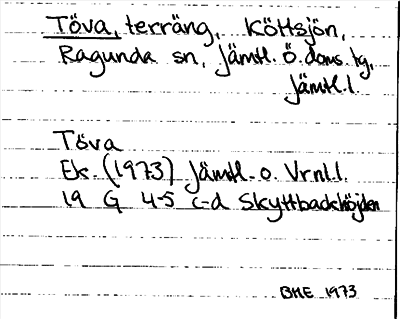 Töva, terräng, Köttsjön,
Ragunda sn, Jämtl. Ö. doms. tg,
Jämtl. l.
Töva
Ek. (1973) Jämtl. o. Vrnl. l.
19 G 4-5 c-d Skyttbackhöjden
BHE 1973